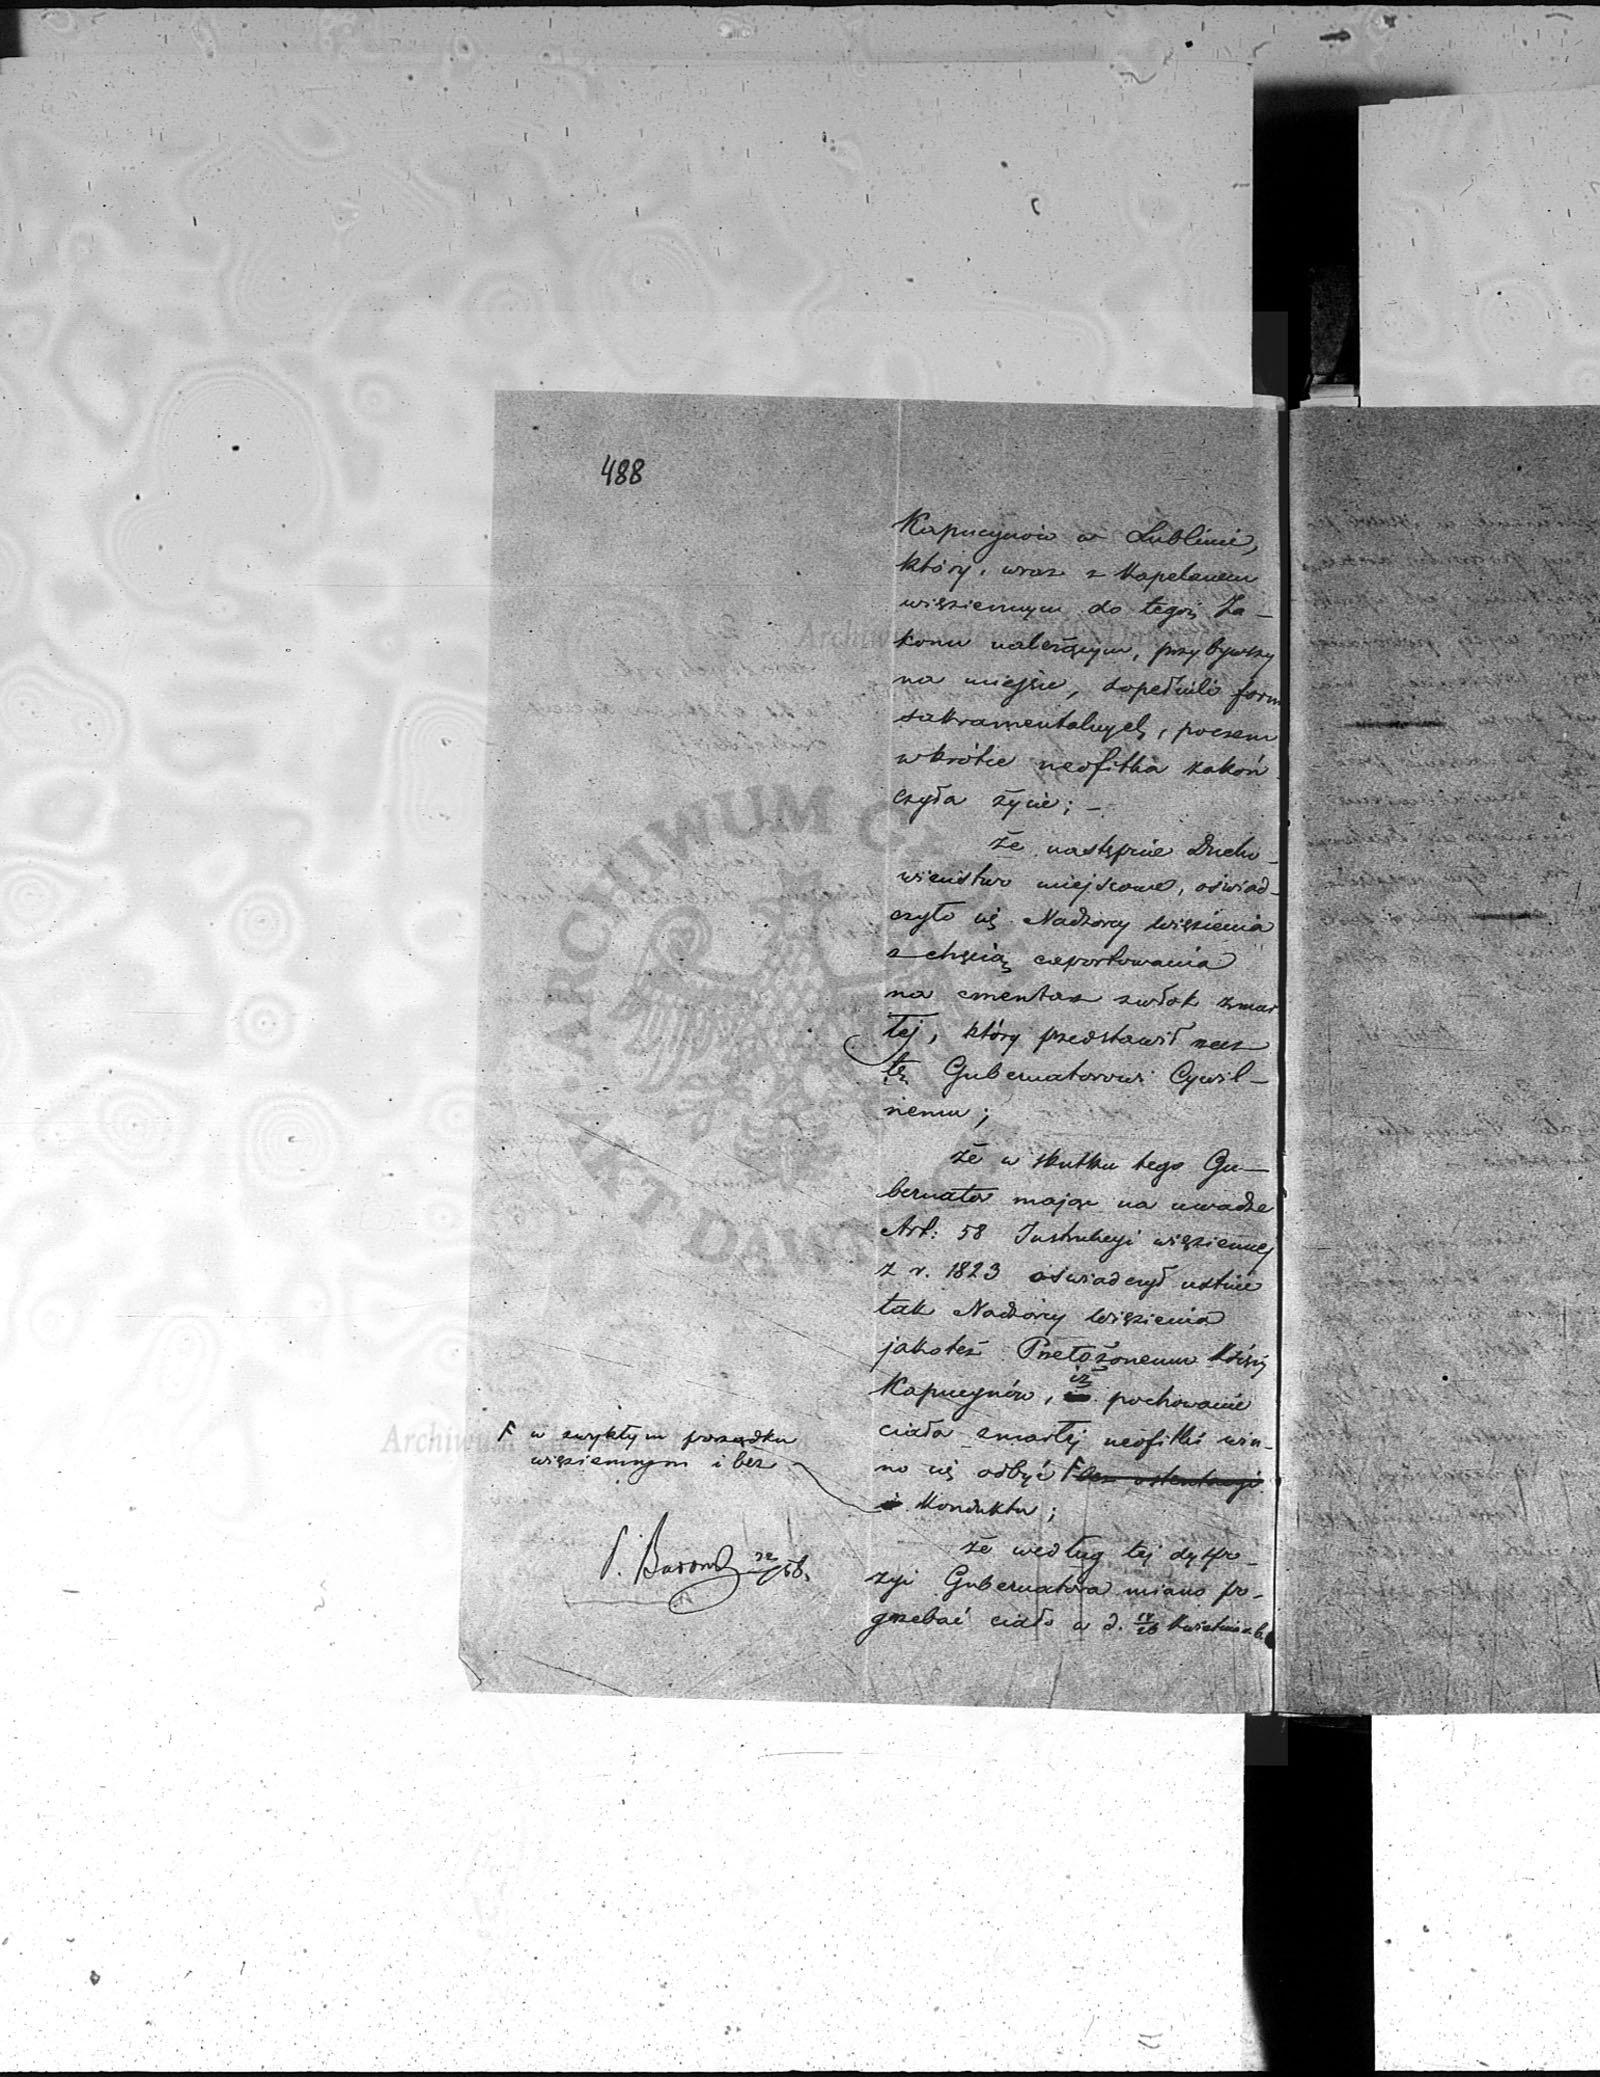 488
Kapucynów w Lublinie,
który, wraz z Kapelanem
więziennym do tegoż Za-
konu należącym, przybywszy
na miejsce, dopełnili form
sakramentalnych, poczem
wkrótce neofitka zakoń
czyła życie; -
że następnie Ducho-
wieństwo miejscowe, oświad-
czyło się Nadzorcy więzienia
z chęcią exportowania
na cmentarz zwłok zmar
łej, który przedstawił rzecz
tę Gubernatorowi Cywil-
nemu;
że w skutku tego Gu-
bernator mając na uwadze
Art: 58 Instrukcyi więziennej
z r. 1823 oświadczył ustnie
tak Nadzorcy więzienia
jakoteż Przełożonemu Księży
Kapucynów, iż pochowanie
ciała zmarłej neofitki win-
no się odbyć F bez ostentacyi
i Konduktu;
F w zwykłym porządku
więziennym i bez
że według tej dyspo-
zycyi Gubernatora miano po-
grzebać ciało w d. 14/26 Kwietnia r.b.
ARCHIWUM GŁÓWNE AKT DAWNYCH
Archiwum Główne Akt Dawnych